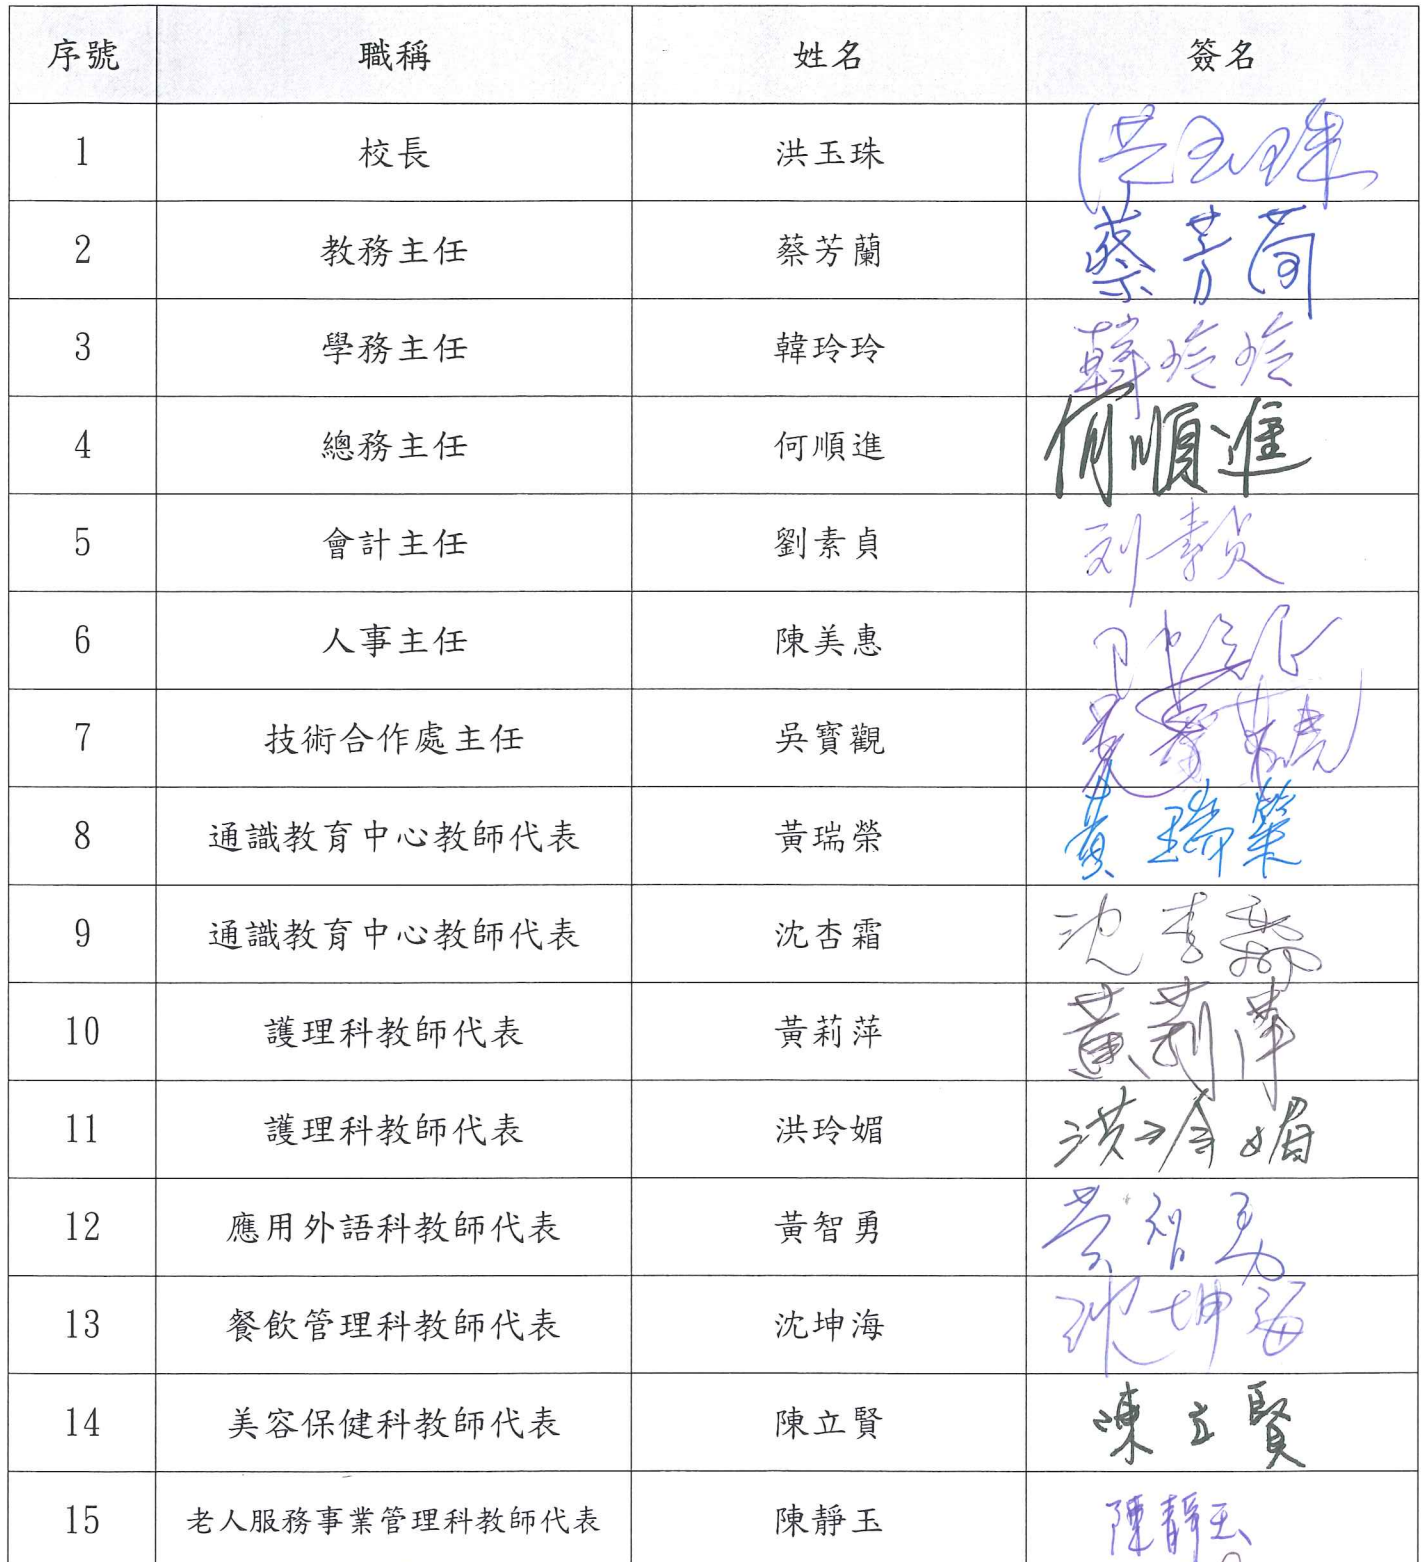 序號 職稱 姓名 簽名
1 校長 洪玉珠 洪玉珠
2 教務主任 蔡芳蘭 蔡芳蘭
3 學務主任 韓玲玲 韓玲玲
4 總務主任 何順進 何順進
5 會計主任 劉素貞 刘素貞
6 人事主任 陳美惠
7 技術合作處主任 吳寶觀
8 通識教育中心教師代表 黃瑞榮 黃瑞榮
9 通識教育中心教師代表 沈杏霜 沈杏霜
10 護理科教師代表 黃莉萍 黃莉萍
11 護理科教師代表 洪玲媚 洪玲媚
12 應用外語科教師代表 黃智勇 黃智勇
13 餐飲管理科教師代表 沈坤海 沈坤海
14 美容保健科教師代表 陳立賢 陳立賢
15 老人服務事業管理科教師代表 陳靜玉 陳靜玉